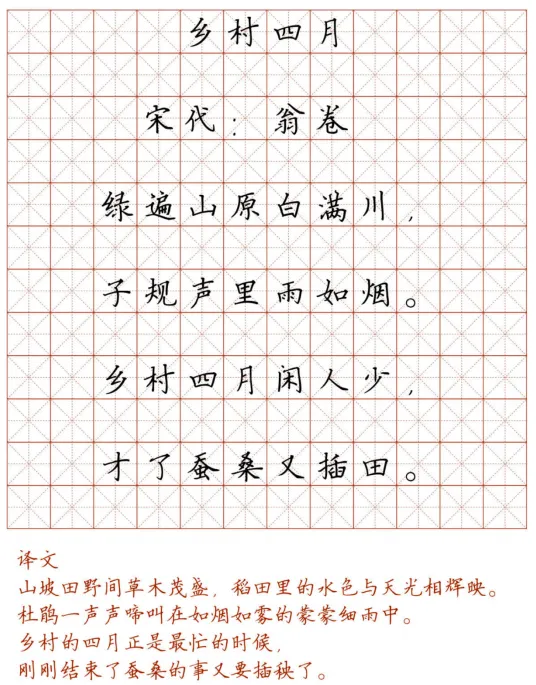 乡村四月
宋代：翁卷
绿遍山原白满川，
子规声里雨如烟。
乡村四月闲人少，
才了蚕桑又插田。
译文
山坡田野间草木茂盛，稻田里的水色与天光相辉映。
杜鹃一声声啼叫在如烟如雾的蒙蒙细雨中。
乡村的四月正是最忙的时候，
刚刚结束了蚕桑的事又要插秧了。